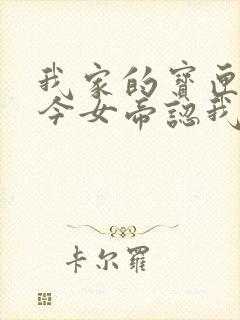 我家的寶
今女帝認我
卡尔羅